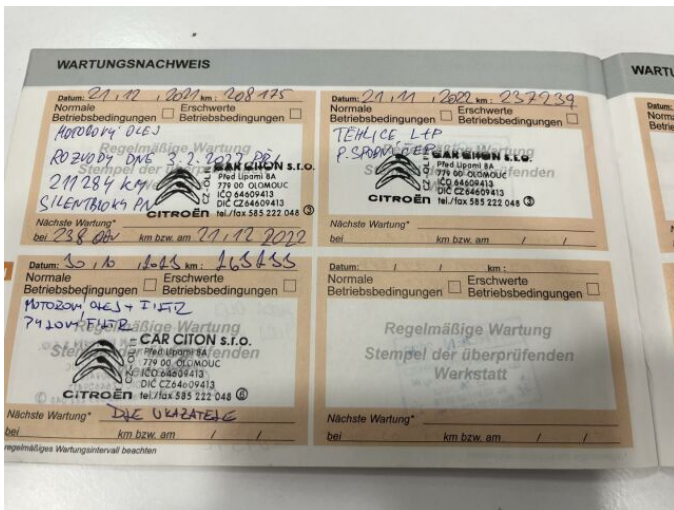 WARTUNGSNACHWEIS
WARTU
Datum: 21 / 12 / 2021 km: 208 175
Normale Betriebsbedingungen Erschwerte Betriebsbedingungen
MOTOROVÝ OLEJ
ROZVODY DNE 3.2.2022 PŘI
211284 KM
SILENTBLOKY PN
Regelmäßige Wartung
Stempel der überprüfenden
CAR CITON s.r.o.
Před Lipami 8A
779 00 OLOMOUC
IČO 64609413
DIČ CZ64609413
tel./fax 585 222 048 ③
CITROËN
Nächste Wartung*
bei 238 000 km bzw. am 21/12 2022
Datum: 21 / 11 / 2022 km: 237239
Normale Betriebsbedingungen Erschwerte Betriebsbedingungen
TĚHLICE L+P
Regelmäßige Wartung
CAR CITON s.r.o.
Před Lipami 8A
779 00 OLOMOUC
IČO 64609413
DIČ CZ64609413
tel./fax 585 222 048 ③
CITROËN
Nächste Wartung*
bei km bzw. am / /
Datum: 30 / 10 / 2023 km:
Normale Betriebsbedingungen Erschwerte Betriebsbedingungen
MOTOROVÝ OLEJ + FILTR
PYLOVÝ FILTR
Regelmäßige Wartung
Stempel der überprüfenden
CAR CITON s.r.o.
Před Lipami 8A
779 00 OLOMOUC
IČO 64609413
DIČ CZ64609413
tel./fax 585 222 048 ⑥
CITROËN
Nächste Wartung* DLE UKAZATELE
bei km bzw. am / /
Datum: / / km:
Normale Betriebsbedingungen Erschwerte Betriebsbedingungen
Regelmäßige Wartung
Stempel der überprüfenden
Werkstatt
Nächste Wartung*
bei km bzw. am / /
regelmäßiges Wartungsintervall beachten